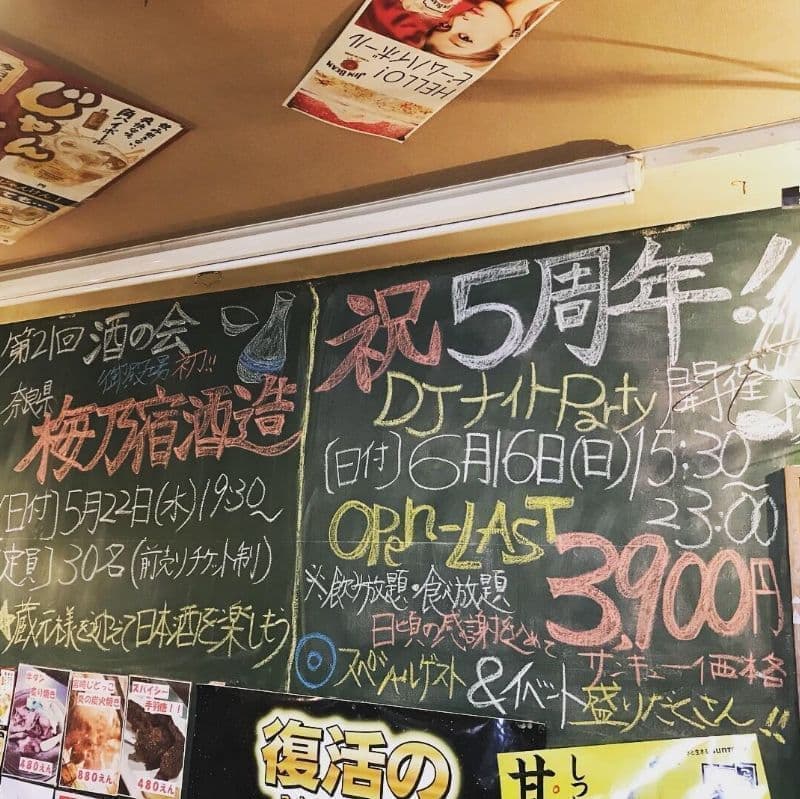 HELLO!
ビームハイボール
JIM BEAM
じゃん
角ハイボール
第21回 酒の会
奈良県
梅乃宿酒造
[日付] 5月22日(水) 19:30~
定員] 30名(前売りチケット制)
★蔵元様を迎えて日本酒を楽しもう
祝5周年!!
DJナイトParty 開催
[日付] 6月16日(日) 15:30~
23:00
OPen-LAST
※飲み放題・食べ放題
3,900円
日頃の感謝をこめて
サンキュー価格
◎スペシャルゲスト
&イベント盛りだくさん!!
牛タン
炙り焼き
480えん
宮崎じどっこ
炭火焼き
880えん
スパイシー
手羽唐!!
480えん
復活の
しっ
甘。